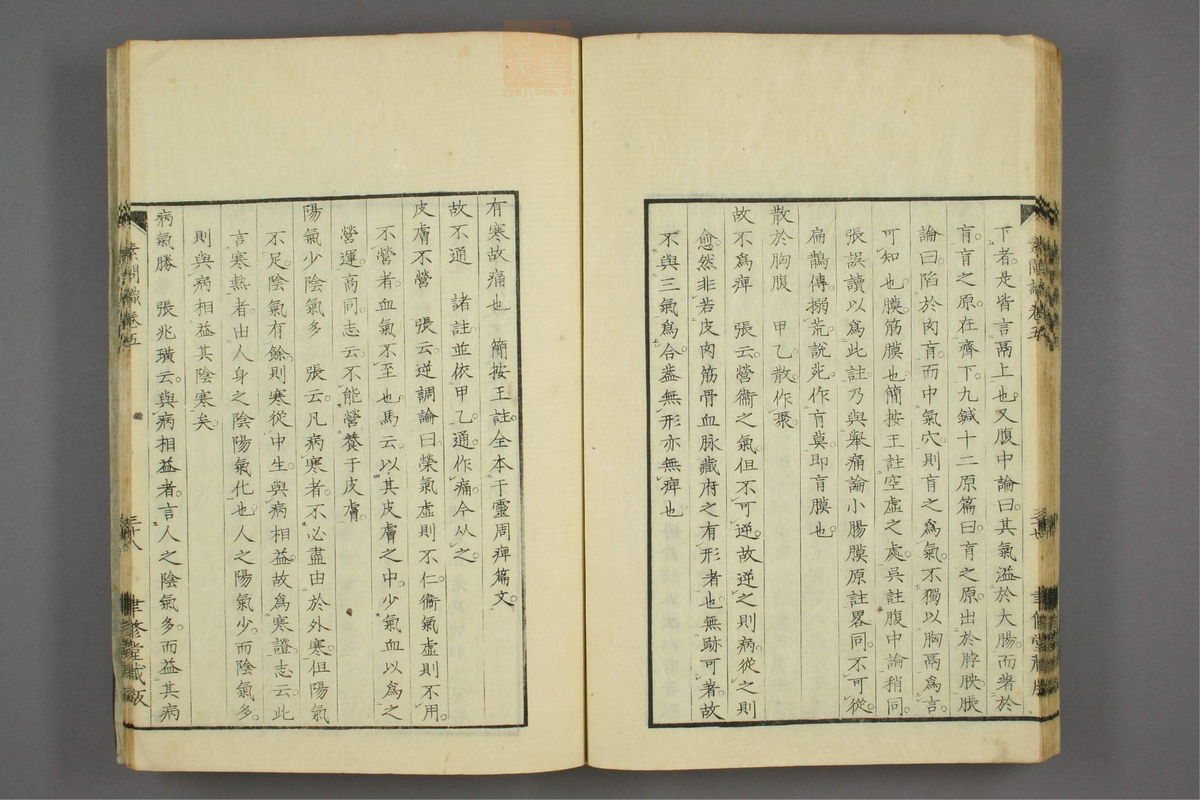 下者是皆言鬲上也又腹中論曰其氣溢於大腸而著於
肓肓之原在齊下九鍼十二原篇曰肓之原出於脖胦脹
論曰陷於肉肓而中氣穴則肓之爲氣不獨以胸鬲爲言
可知也膜筋膜也簡按王註空虛之處吳註腹中論稍同
張誤讀以爲此註乃與舉痛論小腸膜原註畧同不可從
扁鵲傳搦荒說苑作肓莫即肓膜也
散於胸腹 甲乙散作聚
故不爲痺 張云營衞之氣但不可逆故逆之則病從之則
愈然非若皮肉筋骨血脉藏府之有形者也無跡可著故
不與三氣爲合蓋無形亦無痺也
有寒故痛也 簡按王註全本于靈周痺篇文
故不通 諸註並依甲乙通作痛今从之
皮膚不營 張云逆調論曰榮氣虛則不仁衞氣虛則不用
不營者血氣不至也馬云以其皮膚之中少氣血以爲之
營運高同志云不能營養于皮膚
陽氣少陰氣多 張云凡病寒者不必盡由於外寒但陽氣
不足陰氣有餘則寒從中生與病相益故爲寒證志云此
言寒熱者由人身之陰陽氣化也人之陽氣少而陰氣多
則與病相益其陰寒矣
病氣勝 張兆璜云與病相益者言人之陰氣多而益其病
素問識卷五
三十八
聿修堂藏板
zysj.com.cn